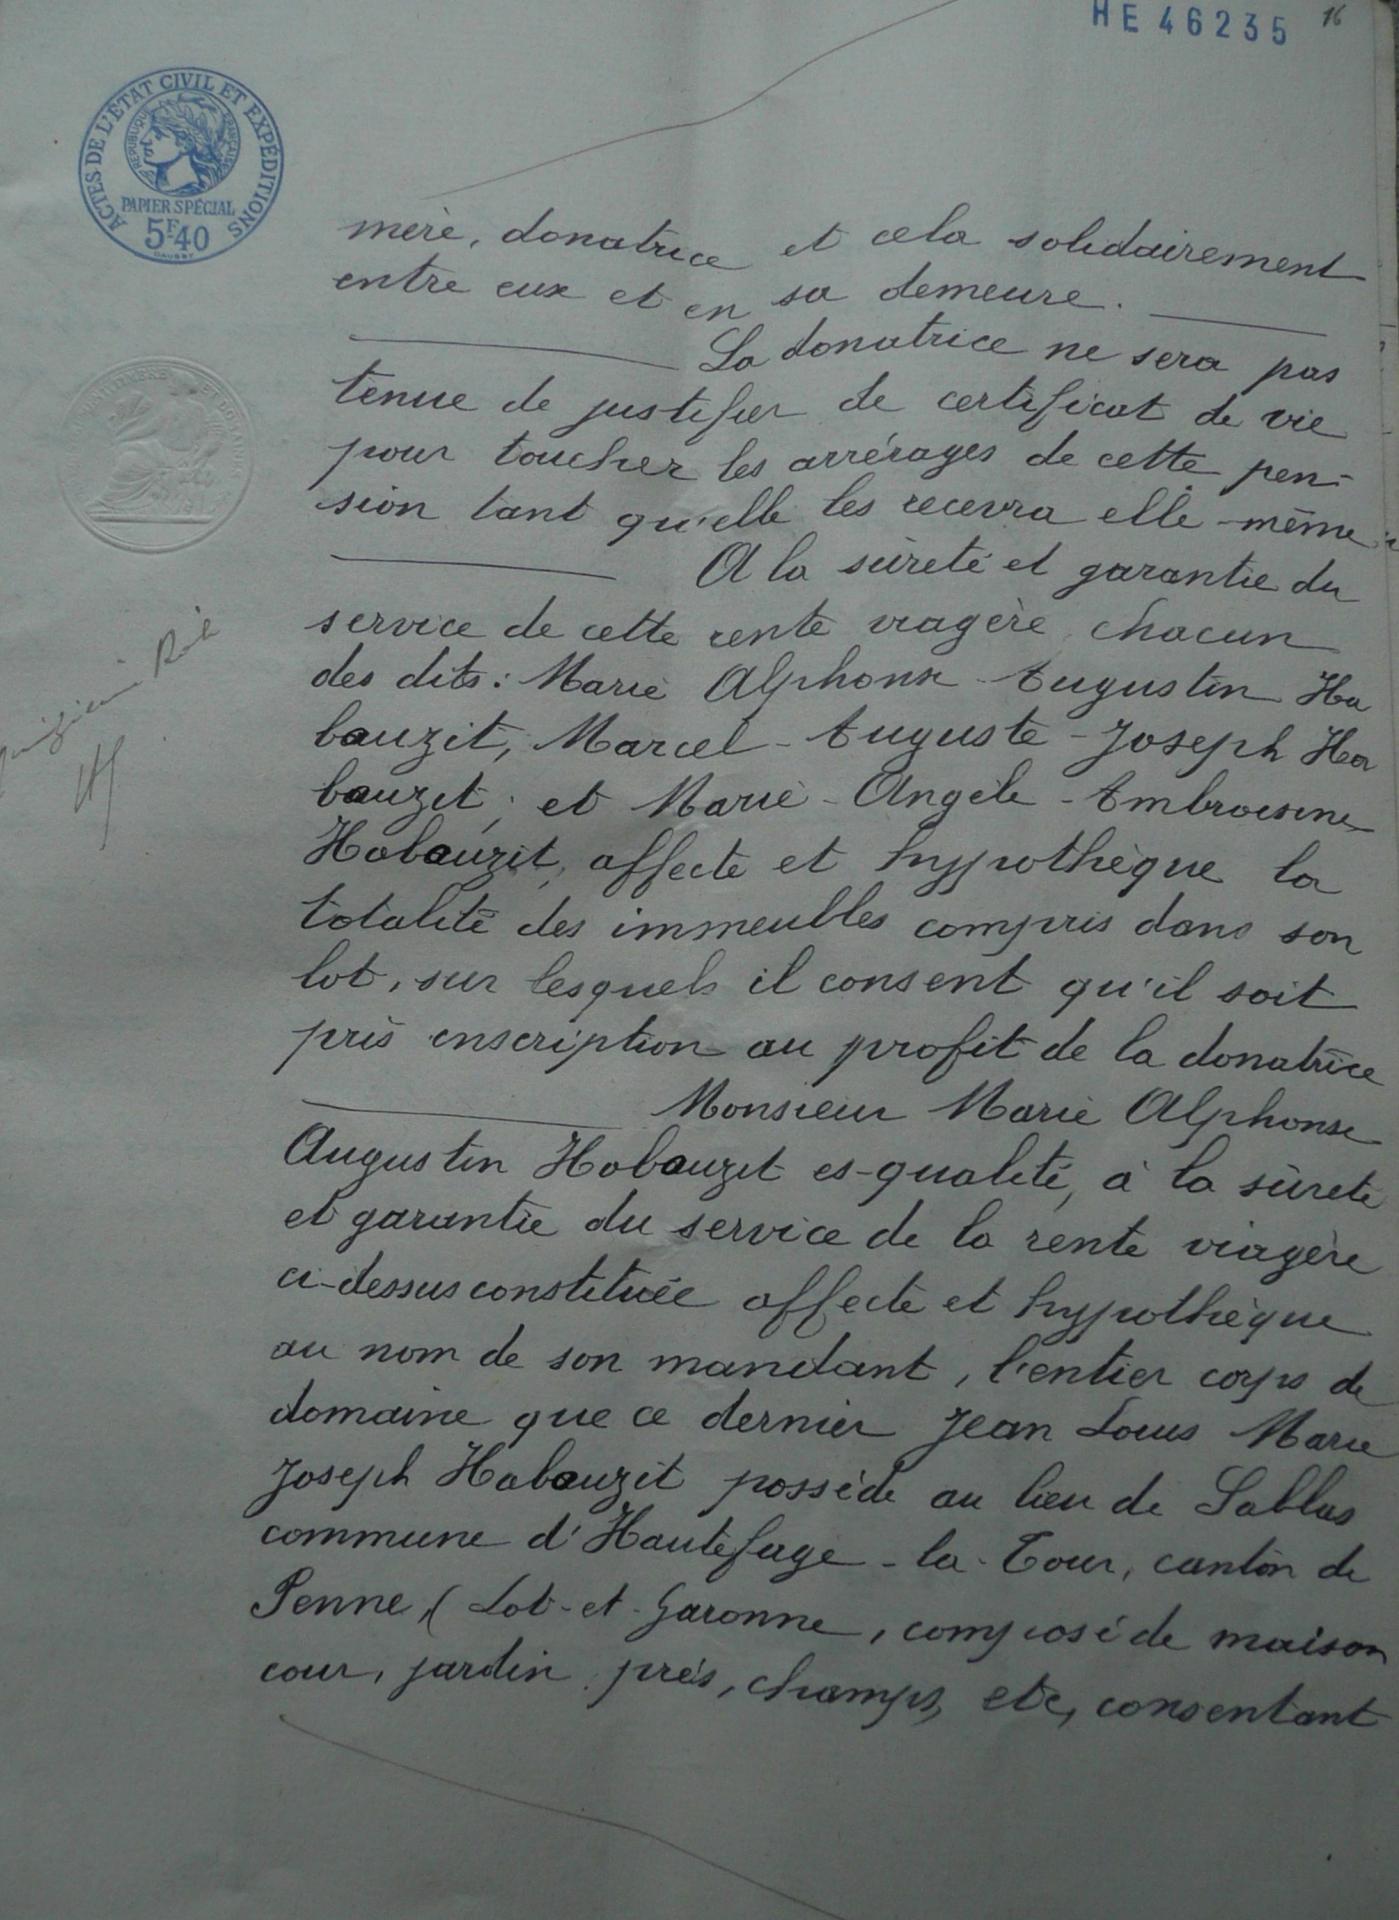 HE 46235
16
ACTES DE L'ÉTAT CIVIL ET EXPÉDITIONS
RÉPUBLIQUE FRANÇAISE
PAPIER SPÉCIAL
5F40
mère, donatrice et cela solidairement
entre eux et en sa demeure.
La donatrice ne sera pas
tenue de justifier de certificat de vie
pour toucher les arrérages de cette pen-
sion tant qu'elle les recevra elle-même
A la sûreté et garantie du
service de cette rente viagère, chacun
des dits: Marie Alphonse Augustin Ha
bauzit, Marcel-Auguste-Joseph Ha
bauzit, et Marie-Angèle-Ambroisine
Habauzit, affecte et hypothèque la
totalité des immeubles compris dans son
lot, sur lesquels il consent qu'il soit
pris inscription au profit de la donatrice
Monsieur Marie Alphonse
Augustin Habauzit es-qualité, à la sûreté
et garantie du service de la rente viagère
ci-dessus constituée affecte et hypothèque
au nom de son mandant, l'entier corps de
domaine que ce dernier Jean Louis Marie
Joseph Habauzit possède au lieu de Sablas
commune d'Hautefage-la-Tour, canton de
Penne, (Lot-et-Garonne, composé de maison
cour, jardin, prés, champs, etc, consentant